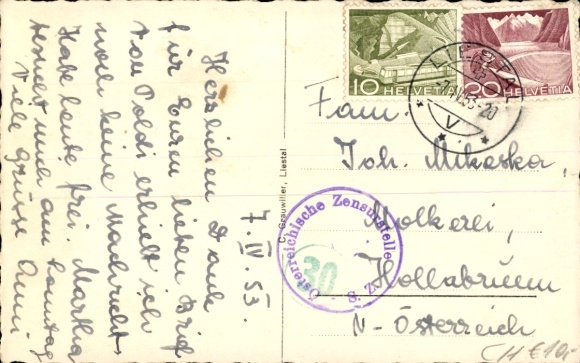 7. IV. 53.
Herzlichen Dank
für Euren lieben Brief
von Poldi erhielt ich
noch keine Nachricht.
Habe heute frei. Martha
kommt am Sonntag
Viele Grüsse Anni.
C. Grauwiller, Liestal
10 HELVETIA
20 HELVETIA
LIESTAL
V
Österreichische Zensurstelle
30
S. Z.
Fam.
Joh. Mikaska,
Molkerei,
Hollabrunn
N-Österreich
CH €10.-